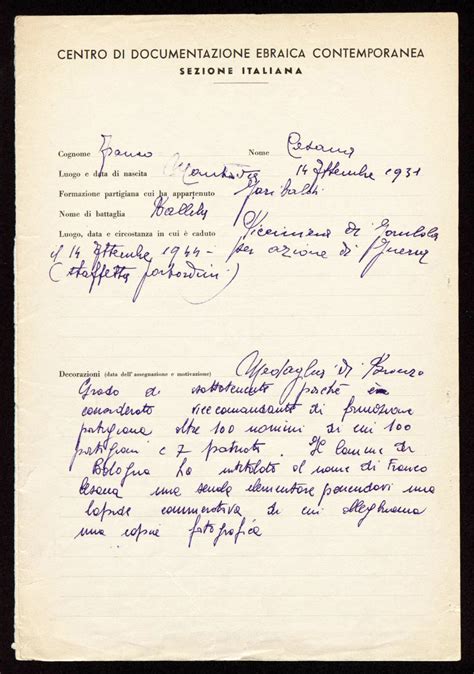 CENTRO DI DOCUMENTAZIONE EBRAICA CONTEMPORANEA
SEZIONE ITALIANA
Cognome Franco Nome Cesana
Luogo e data di nascita Mantova 14 settembre 1931
Formazione partigiana cui ha appartenuto Garibaldi
Nome di battaglia
Luogo, data e circostanza in cui è caduto Vicinanze di Gombola
il 14 settembre 1944 - per azione di guerra
(staffetta portordini)
Decorazioni (data dell'assegnazione e motivazione) Medaglia di Bronzo
Grado di sottotenente perché
considerato vicecomandante di formazione
partigiana oltre 100 uomini di cui 100
partigiani e 7 patrioti. Il
Bologna ha intitolato al nome di Franco
Cesana una scuola elementare ponendovi una
lapide commemorativa di cui alleghiamo
una copia fotografica